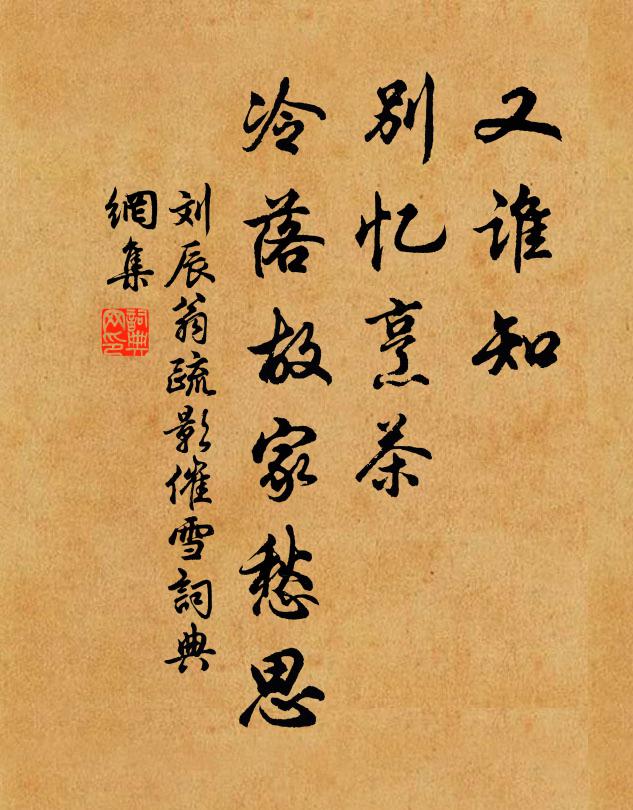 又谁知
别忆烹茶
冷落故家愁思
刘辰翁疏影催雪詞典
網集
詞典
网印